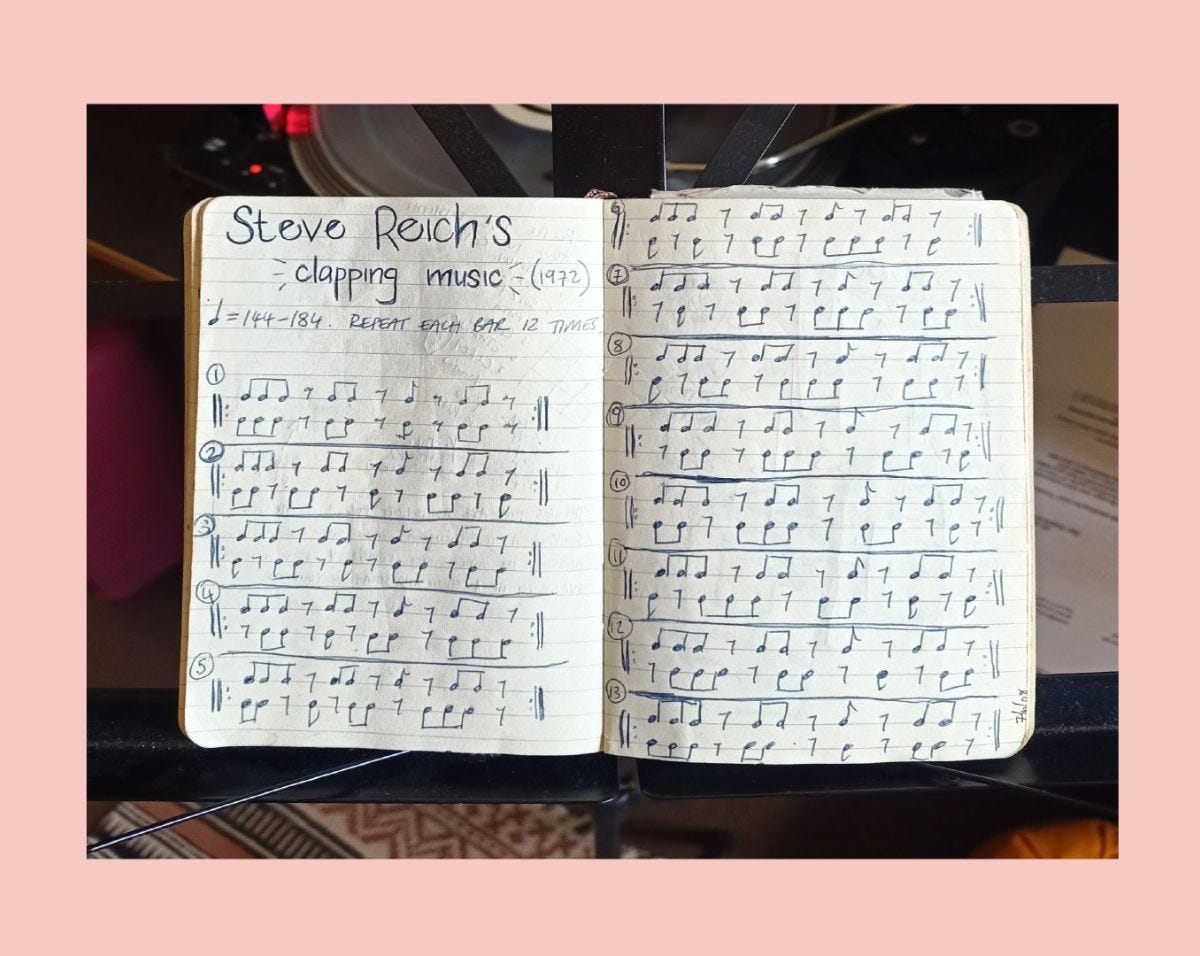 Steve Reich's
clapping music (1972)
♩=144-184. REPEAT EACH BAR 12 TIMES
1
2
3
4
5
6
7
8
9
10
11
12
13